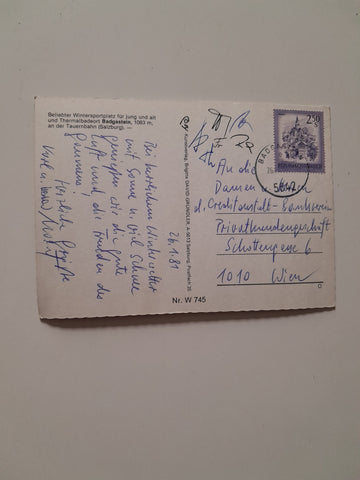 Beliebter Wintersportplatz für jung und alt
und Thermalbadeort Badgastein, 1083 m,
an der Tauernbahn (Salzburg). —
26.1.81
Bei herrlichem Winterwetter
mit Sonne u. viel Schnee
genießen wir die gute
Luft und die Freuden des
Herzliche Grüße
Nr. W 745
2.50
REPUBLIK ÖSTERREICH
BADGASTEIN
An die
Damen u.
d. Creditanstalt-Bankverein
Privatkundengeschäft
Schottengasse 6
1010 Wien